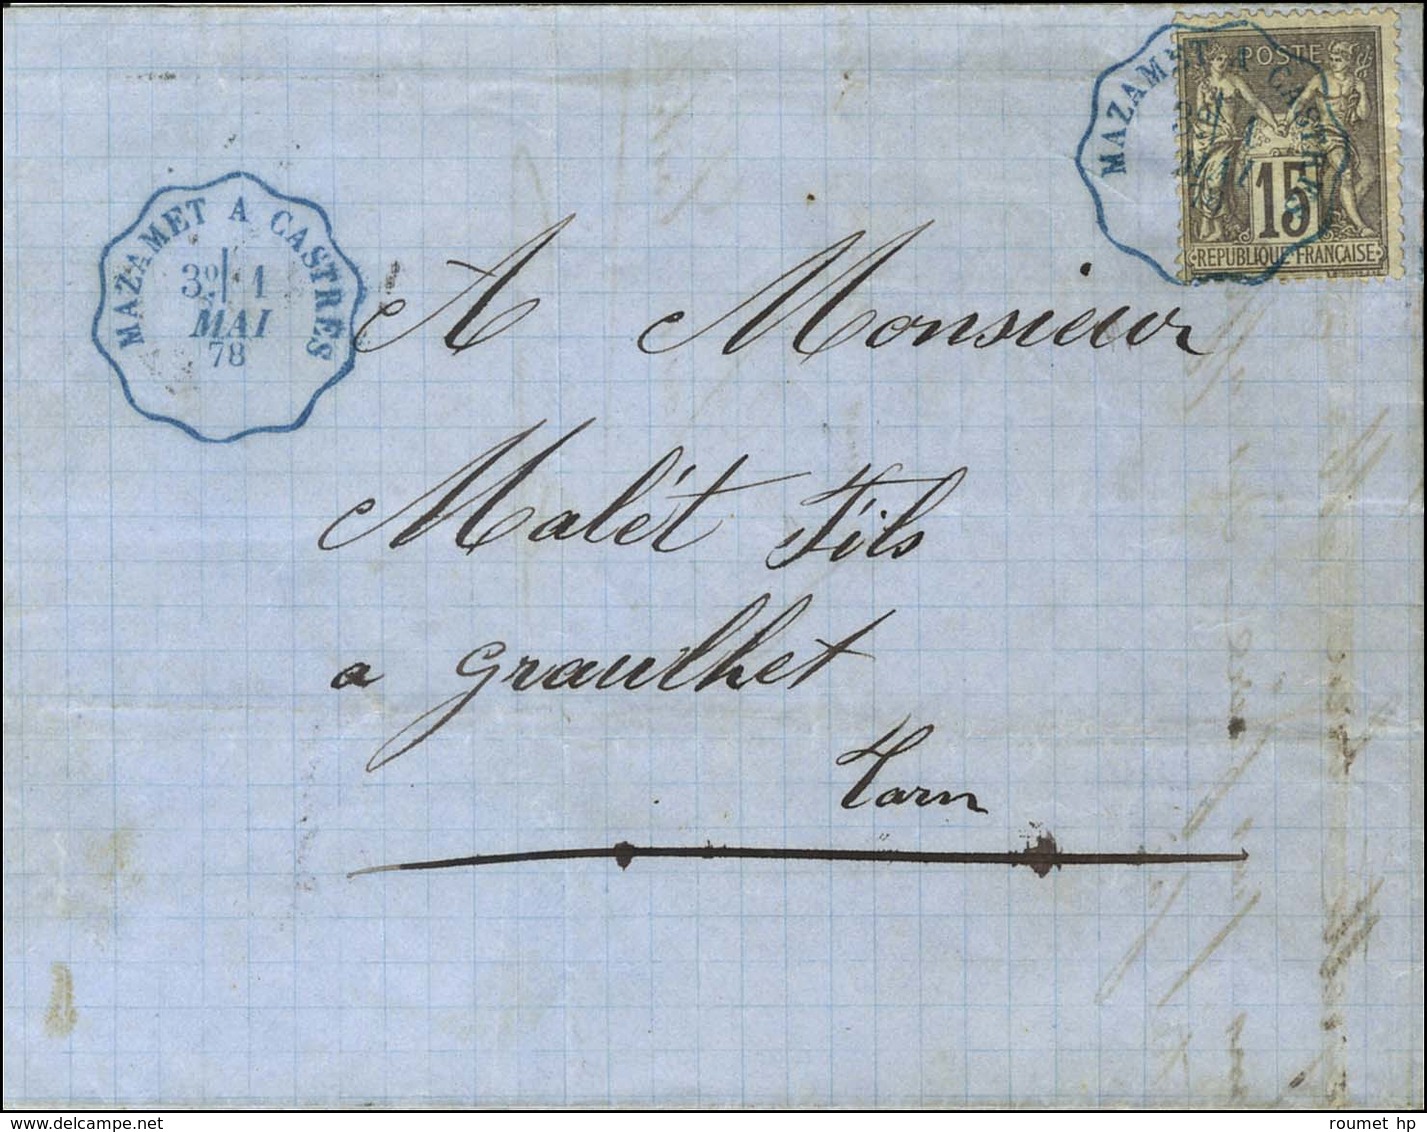 MAZAMET A CASTRES
3º 1
MAI
78
MAZAMET A CASTRES
MAI
POSTE
15
REPUBLIQUE FRANÇAISE
A Monsieur
Malét Fils
a graulhet
Tarn
delcampe.net
roumet hp